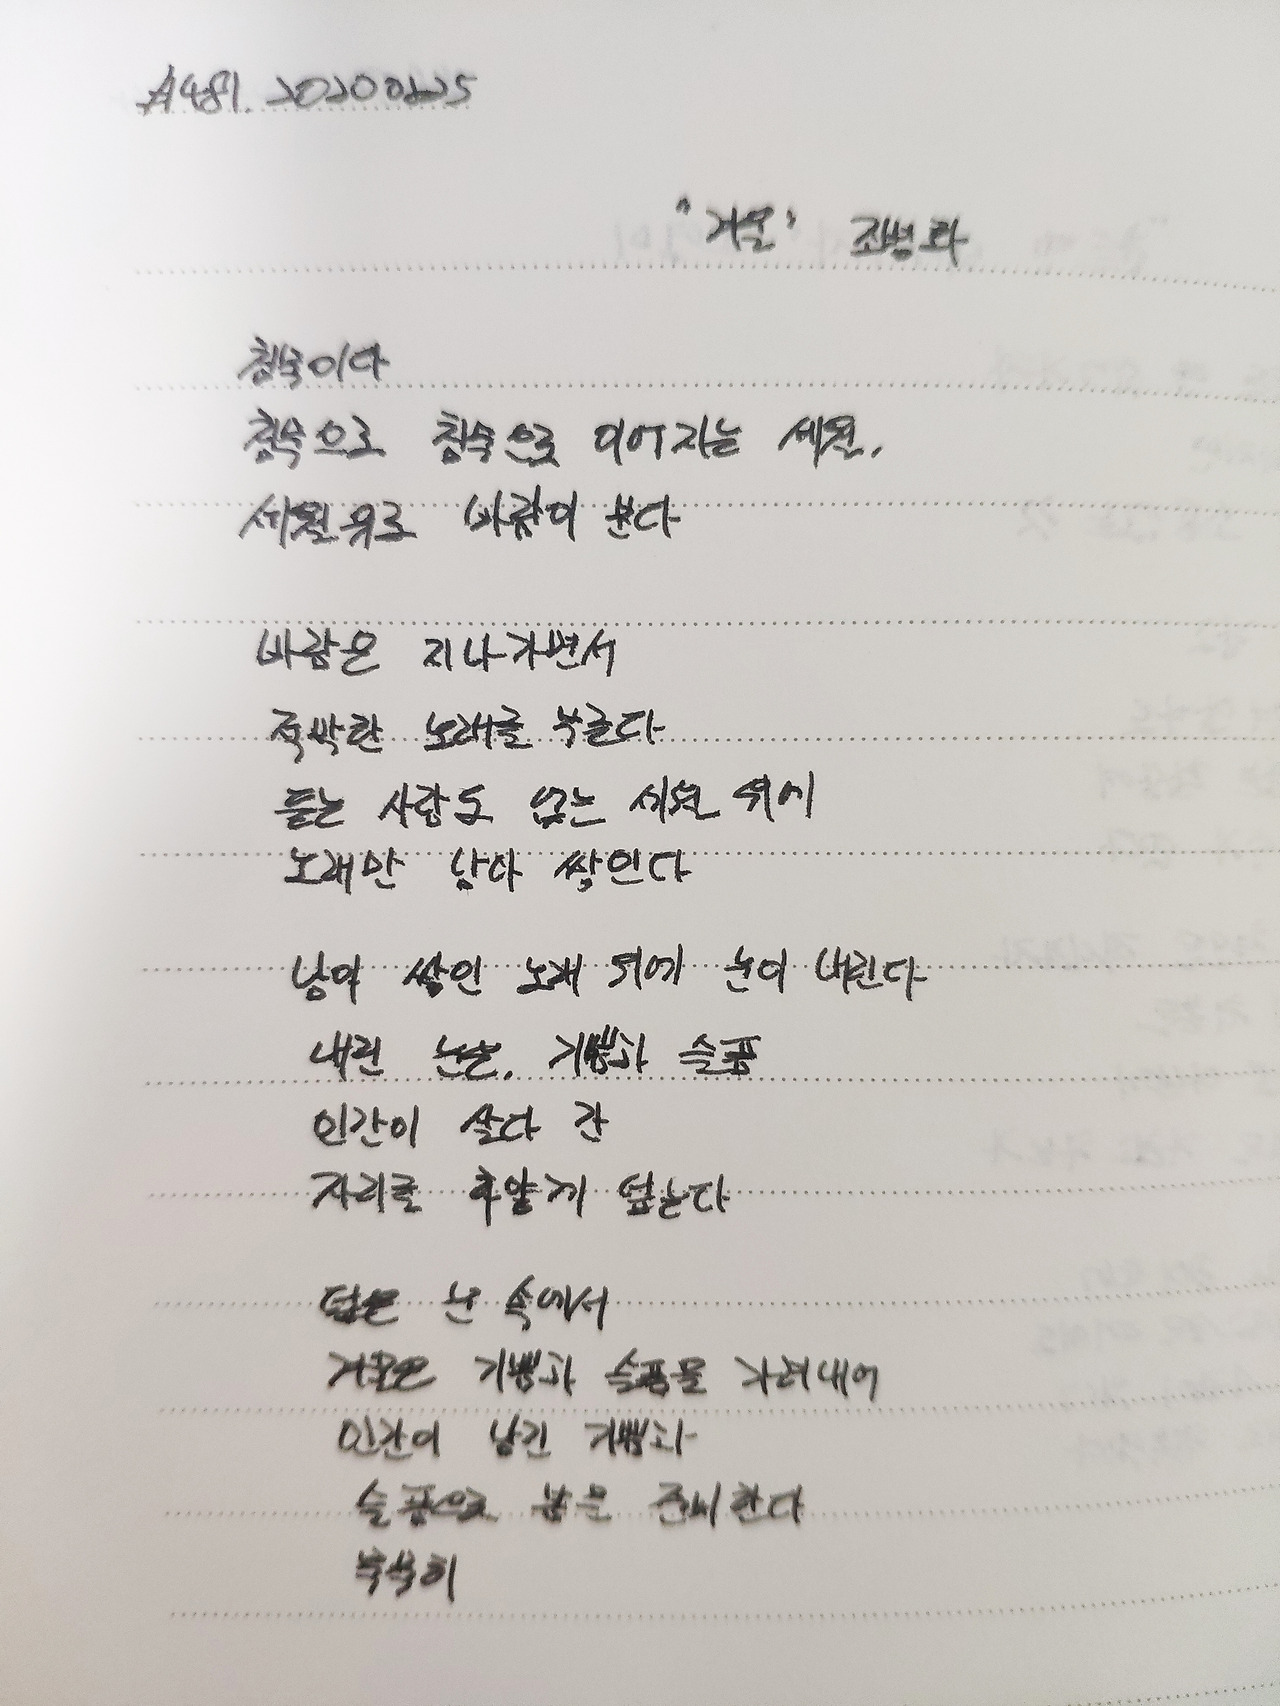 A481. 20200225
"겨울" 조병화
침묵이다
침묵으로 침묵으로 이어지는 세월,
세월 위로 바람이 분다
바람은 지나가면서
적막한 노래를 부른다
듣는 사람도 없는 세월 위에
노래만 남아 쌓인다
남아 쌓인 노래 위에 눈이 내린다
내린 눈은, 기쁨과 슬픔
인간이 살다 간
자리를 하얗게 덮는다
덮은 눈 속에서
겨울은 기쁨과 슬픔을 가려내어
인간이 남긴 기쁨과
슬픔으로 봄을 준비한다
묵묵히